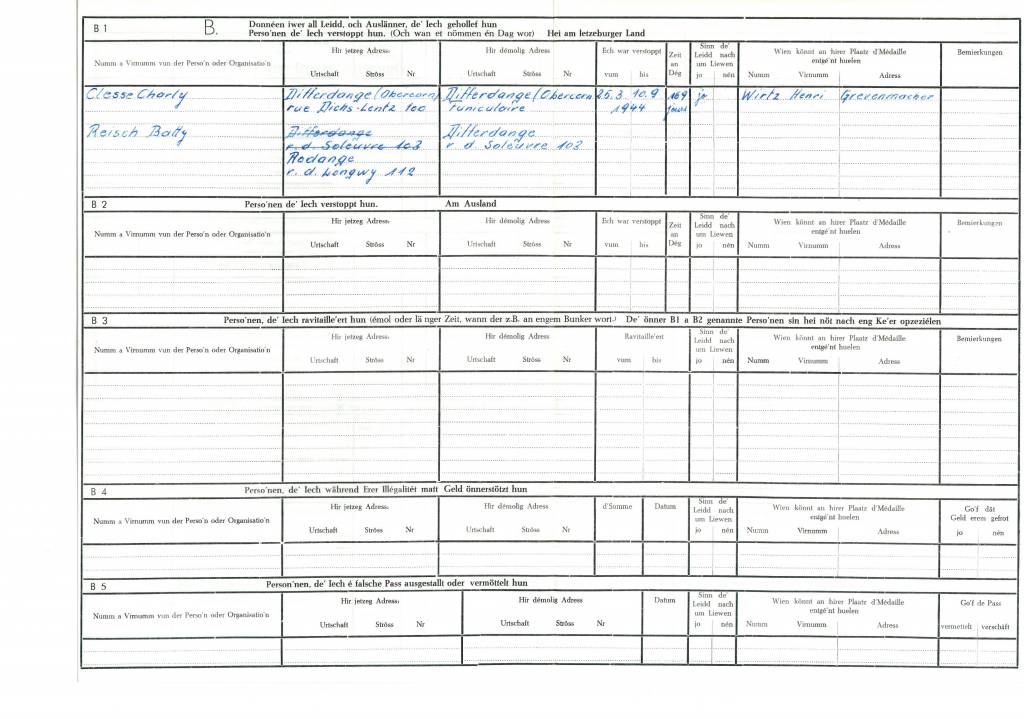 B 1 B. Donnéen iwer all Leidd, och Auslänner, de' Iech gehollef hun
Perso'nen de' Iech verstoppt hun. (Och wan et nömmen én Dag wor) Hei am letzeburger Land
Numm a Virnumm vun der Perso'n oder Organisatio'n
Hir jetzeg Adress:
Urtschaft Ströss Nr
Hir démolig Adress
Urtschaft Ströss Nr
Ech war verstoppt
vum bis
Zeit
an
Dég
Sinn de'
Leidd nach
um Liewen
jo nén
Wien könnt an hirer Plaatz d'Médaille
entgé'nt huelen
Numm Virnumm Adress
Bemierkungen
Clesse Charly Differdange (Obercorn) Differdange (Obercorn 25.3 10.9 169 jo Wirtz Henri Grevenmacher
rue Dicks-Lentz 100 Funiculaire 1944 jours
Reisch Batty Differdange Differdange
r. d. Soleuvre 103 r. d. Soleuvre 103
Rodange
r. d. Longwy 112
B 2 Perso'nen de' Iech verstoppt hun. Am Ausland
Numm a Virnumm vun der Perso'n oder Organisatio'n
Hir jetzeg Adress:
Urtschaft Ströss Nr
Hir démolig Adress
Urtschaft Ströss Nr
Ech war verstoppt
vum bis
Zeit
an
Dég
Sinn de'
Leidd nach
um Liewen
jo nén
Wien könnt an hirer Plaatz d'Médaille
entgé'nt huelen
Numm Virnumm Adress
Bemierkungen
B 3 Perso'nen, de' Iech ravitaille'ert hun (émol oder länger Zeit, wann der z.B. an engem Bunker wort.) De' önner B1 a B2 genannte Perso'nen sin hei nöt nach eng Ke'er opzeziélen
Numm a Virnumm vun der Perso'n oder Organisatio'n
Hir jetzeg Adress:
Urtschaft Ströss Nr
Hir démolig Adress
Urtschaft Ströss Nr
Ravitaille'est
vum bis
Sinn de'
Leidd nach
um Liewen
jo nén
Wien könnt an hirer Plaatz d'Médaille
entgé'nt huelen
Numm Virnumm Adress
Bemierkungen
B 4 Perso'nen, de' Iech während Erer Illégalitét matt Geld önnerstötzt hun
Numm a Virnumm vun der Perso'n oder Organisatio'n
Hir jetzeg Adress:
Urtschaft Ströss Nr
Hir démolig Adress
Urtschaft Ströss Nr
d'Somme
Datum
Sinn de'
Leidd nach
um Liewen
jo nén
Wien könnt an hirer Plaatz d'Médaille
entgé'nt huelen
Numm Virnumm Adress
Go'f dât
Geld erem gefrot
jo nén
B 5 Person'nen, de' Iech é falsche Pass ausgestallt oder vermöttelt hun
Numm a Virnumm vun der Perso'n oder Organisatio'n
Hir jetzeg Adress:
Urtschaft Ströss Nr
Hir démolig Adress
Urtschaft Ströss Nr
Datum
Sinn de'
Leidd nach
um Liewen
jo nén
Wien könnt an hirer Plaatz d'Médaille
entgé'nt huelen
Numm Virnumm Adress
Go'f de Pass
vermettelt verschâft